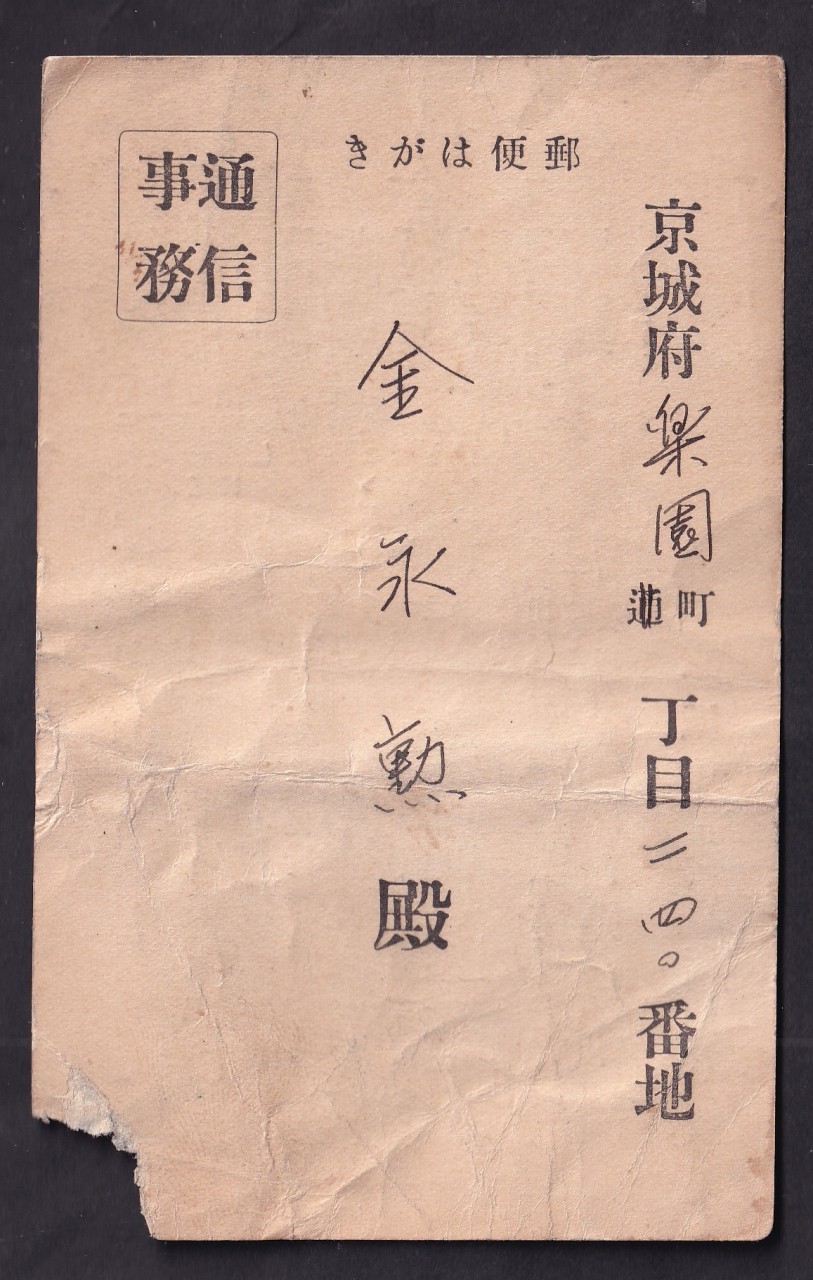 郵便はがき
京城府楽園町通丁目二四〇番地
金永勲殿
通信
事務